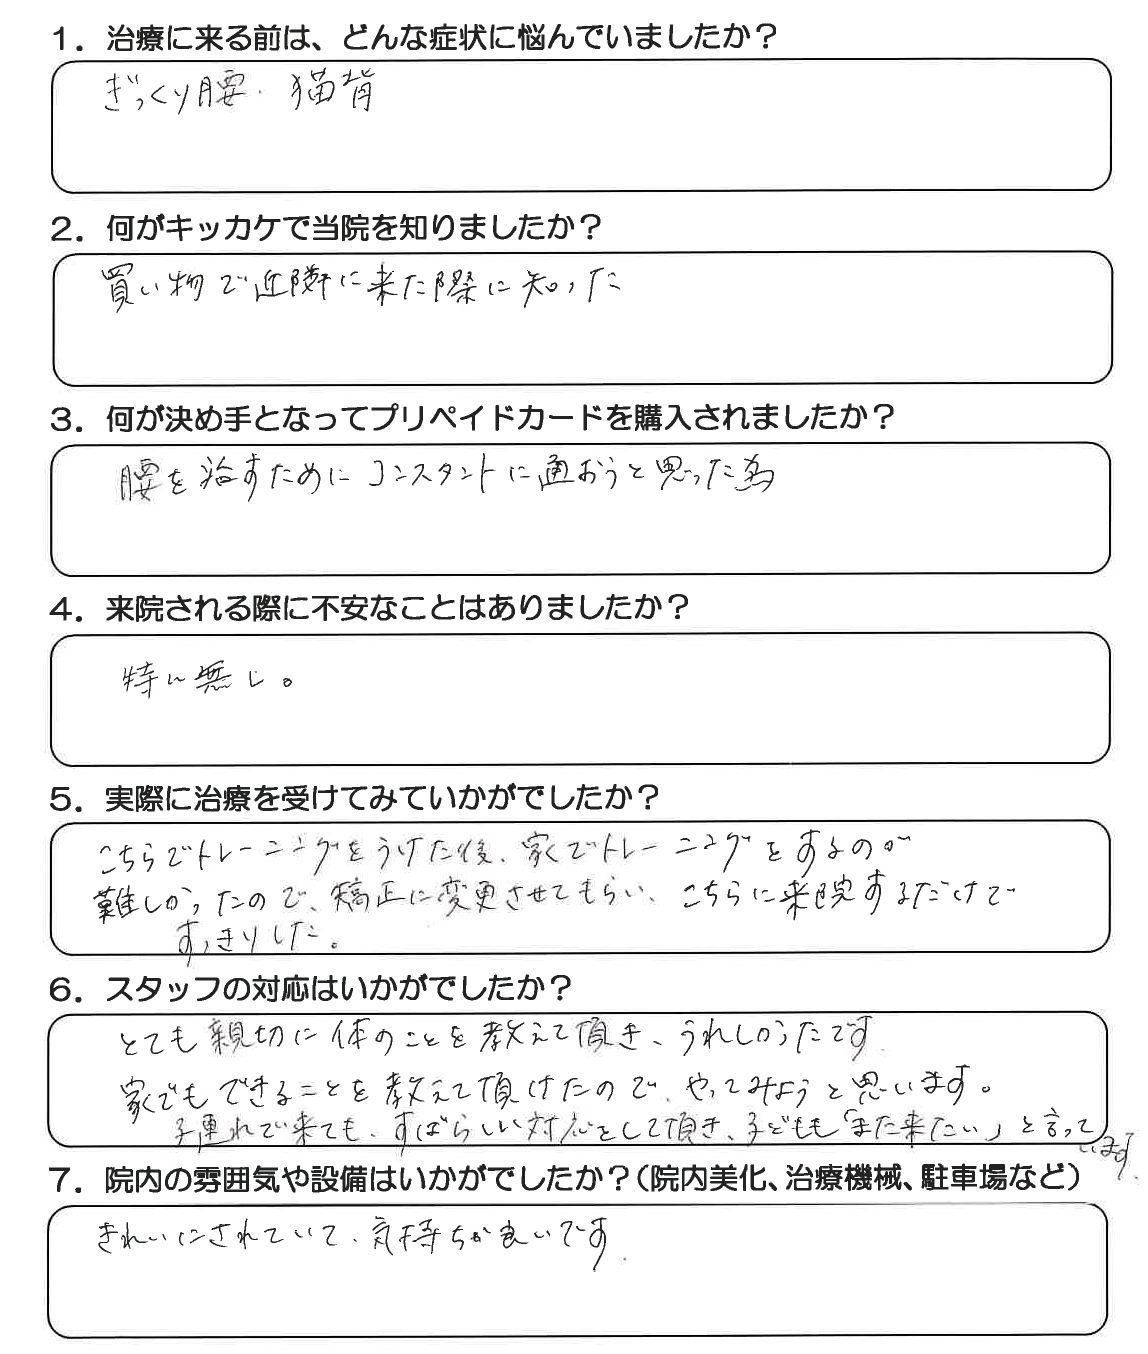 1．治療に来る前は、どんな症状に悩んでいましたか？
ぎっくり腰．猫背
2．何がキッカケで当院を知りましたか？
買い物で近隣に来た際に知った
3．何が決め手となってプリペイドカードを購入されましたか？
腰を治すためにコンスタントに通おうと思った為
4．来院される際に不安なことはありましたか？
特に無し。
5．実際に治療を受けてみていかがでしたか？
こちらでトレーニングをうけた後、家でトレーニングをするのが
難しかったので、矯正に変更させてもらい、こちらに来院するだけで
すっきりした。
6．スタッフの対応はいかがでしたか？
とても親切に体のことを教えて頂き、うれしかったです．
家でもできることを教えて頂けたので、やってみようと思います。
子連れで来ても、すばらしい対応をして頂き、子どもも「また来たい」と言って
います．
7．院内の雰囲気や設備はいかがでしたか？（院内美化、治療機械、駐車場など）
きれいにされていて、気持ちが良いです．